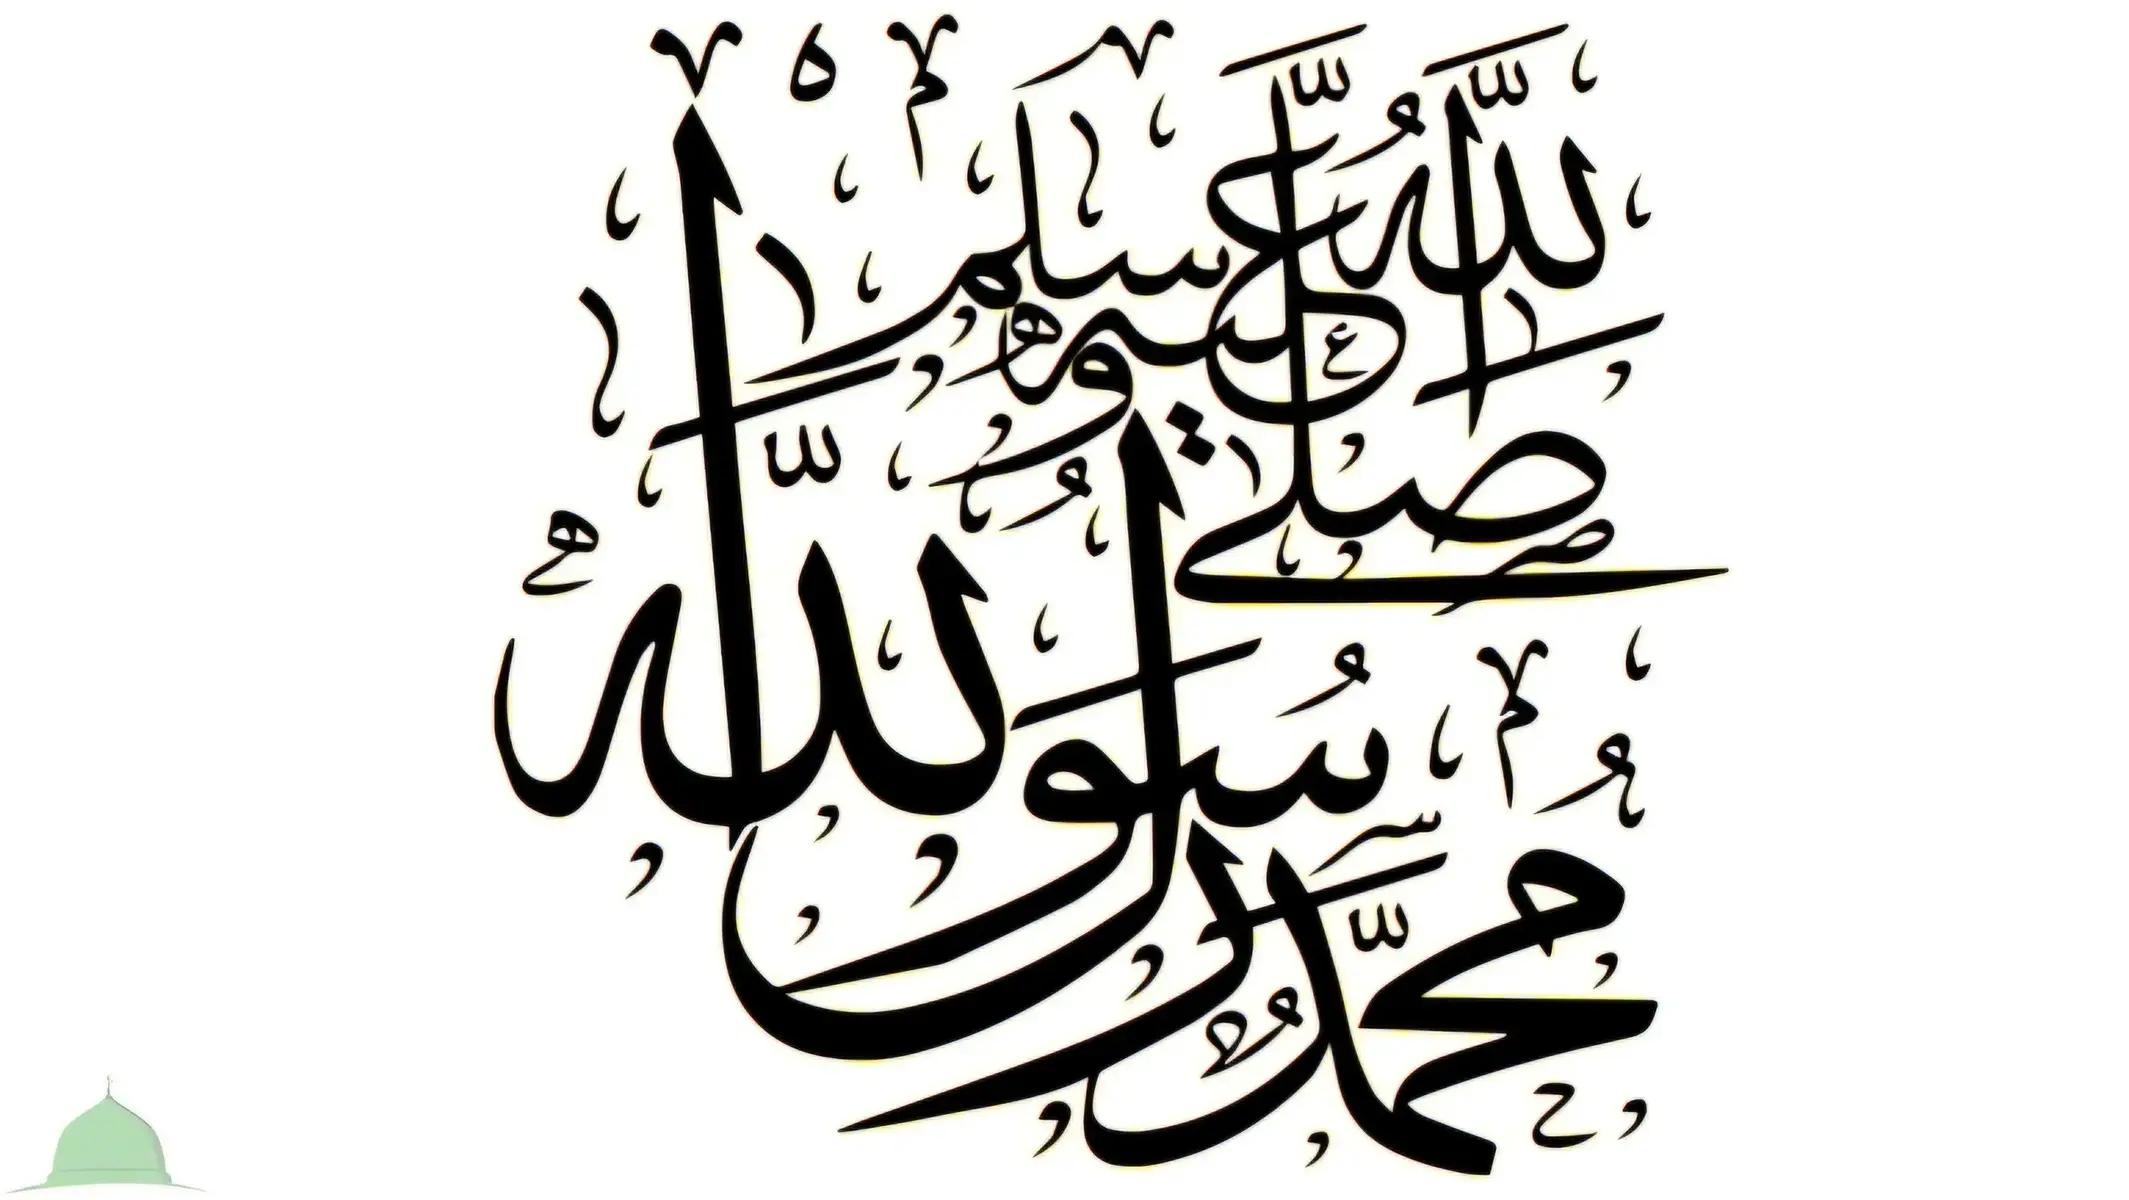 مُحَمَّدٌ رَسُولُ اللّٰه
صَلَّى اللّٰهُ عَلَيْهِ وَسَلَّم